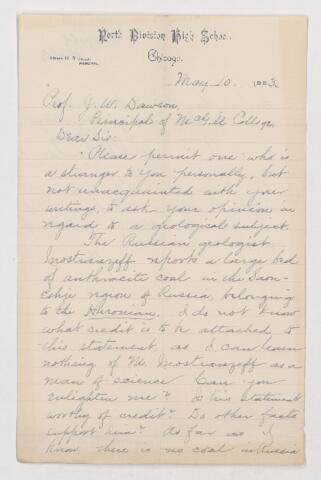 North Division High School.
Chicago.
PRINCIPAL
May 10. 1883.
Prof. J. W. Dawson,
Principal of McGill College,
Dear Sir:
Please permit one who is
a stranger to you personally, but
not unacquainted with your
writings, to ask your opinion in
regard to a geological subject.
The Russian geologist
Inostranzeff reports a large bed
of anthracite coal in the
region of Russia, belonging
to the Huronian. I do not know
what credit is to be attached to
this statement, as I can learn
nothing of M. Inostranzeff as a
man of science. Can you
enlighten me? Is his statement
worthy of credit? Do other facts
support him? As far as I
know, there is no coal in Russia